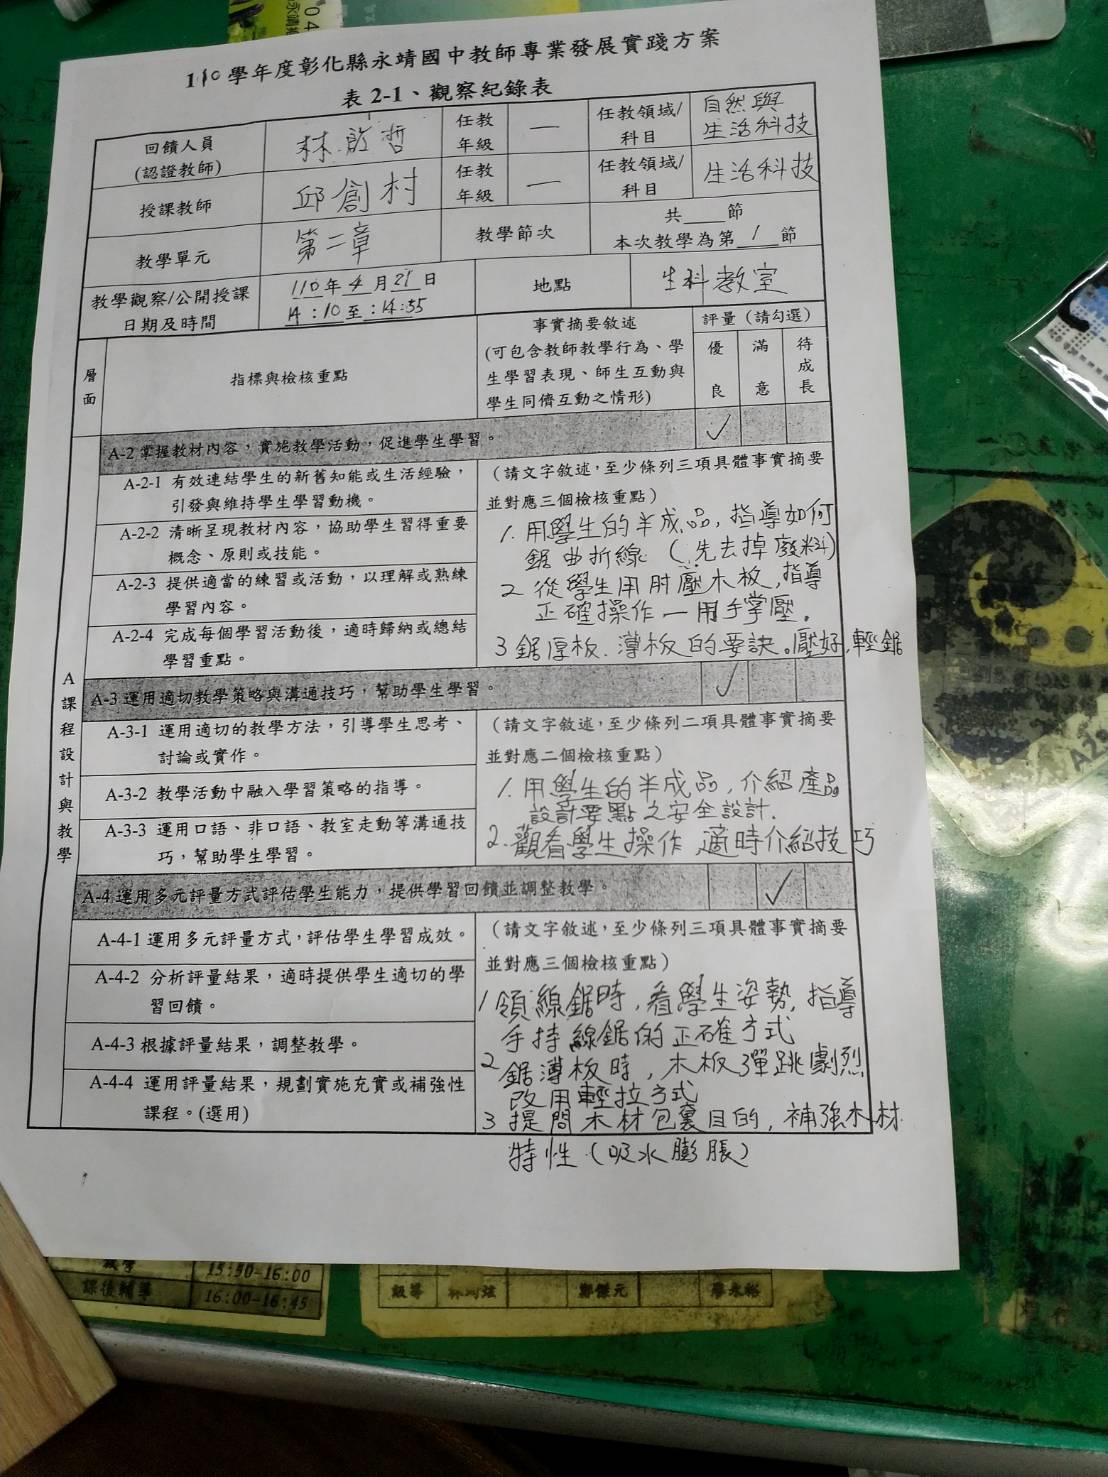 110學年度彰化縣永靖國中教師專業發展實踐方案
表 2-1、觀察紀錄表
回饋人員
(認證教師)
林啟哲
任教
年級
一
任教領域/
科目
自然與
生活科技
授課教師
邱創村
任教
年級
一
任教領域/
科目
生活科技
教學單元
第二章
教學節次
共____節
本次教學為第 1 節
教學觀察/公開授課
日期及時間
110年4月21日
14:10至:14:55
地點
生科教室
層面
指標與檢核重點
事實摘要敘述
(可包含教師教學行為、學
生學習表現、師生互動與
學生同儕互動之情形)
評量(請勾選)
優良
滿意
待成長
A課程設計與教學
A-2 掌握教材內容,實施教學活動,促進學生學習。
✓
A-2-1 有效連結學生的新舊知能或生活經驗,
引發與維持學生學習動機。
A-2-2 清晰呈現教材內容,協助學生習得重要
概念、原則或技能。
A-2-3 提供適當的練習或活動,以理解或熟練
學習內容。
A-2-4 完成每個學習活動後,適時歸納或總結
學習重點。
(請文字敘述,至少條列三項具體事實摘要
並對應三個檢核重點)
1. 用學生的半成品,指導如何
鋸曲折線 (先去掉廢料)
2 從學生用肘壓木板,指導
正確操作一用手掌壓.
3 鋸厚板、薄板的要訣。壓好,輕鋸
A-3 運用適切教學策略與溝通技巧,幫助學生學習。
✓
A-3-1 運用適切的教學方法,引導學生思考、
討論或實作。
A-3-2 教學活動中融入學習策略的指導。
A-3-3 運用口語、非口語、教室走動等溝通技
巧,幫助學生學習。
(請文字敘述,至少條列二項具體事實摘要
並對應二個檢核重點)
1. 用學生的半成品,介紹產品
設計要點之安全設計.
2. 觀看學生操作,適時介紹技巧
A-4 運用多元評量方式評估學生能力,提供學習回饋並調整教學。
✓
A-4-1 運用多元評量方式,評估學生學習成效。
A-4-2 分析評量結果,適時提供學生適切的學
習回饋。
A-4-3 根據評量結果,調整教學。
A-4-4 運用評量結果,規劃實施充實或補強性
課程。(選用)
(請文字敘述,至少條列三項具體事實摘要
並對應三個檢核重點)
1 領線鋸時,看學生姿勢,指導
手持線鋸的正確方式
2 鋸薄板時,木板彈跳劇烈
改用輕拉方式
3 提問木材包裹目的,補強木材
特性(吸水膨脹)
15:30-16:00
課後輔導
16:00-16:45
鄭傑元
廖永裕